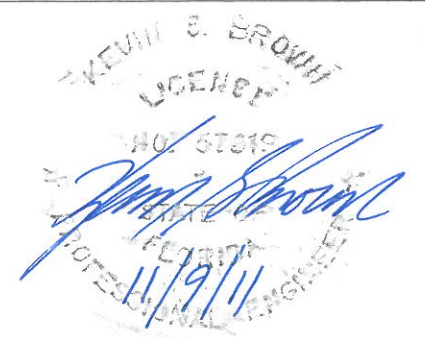 KEVIN E. BROWN
LICENSE
NO. 57819
STATE
FLORIDA
PROFESSIONAL ENGINEER
11/9/11